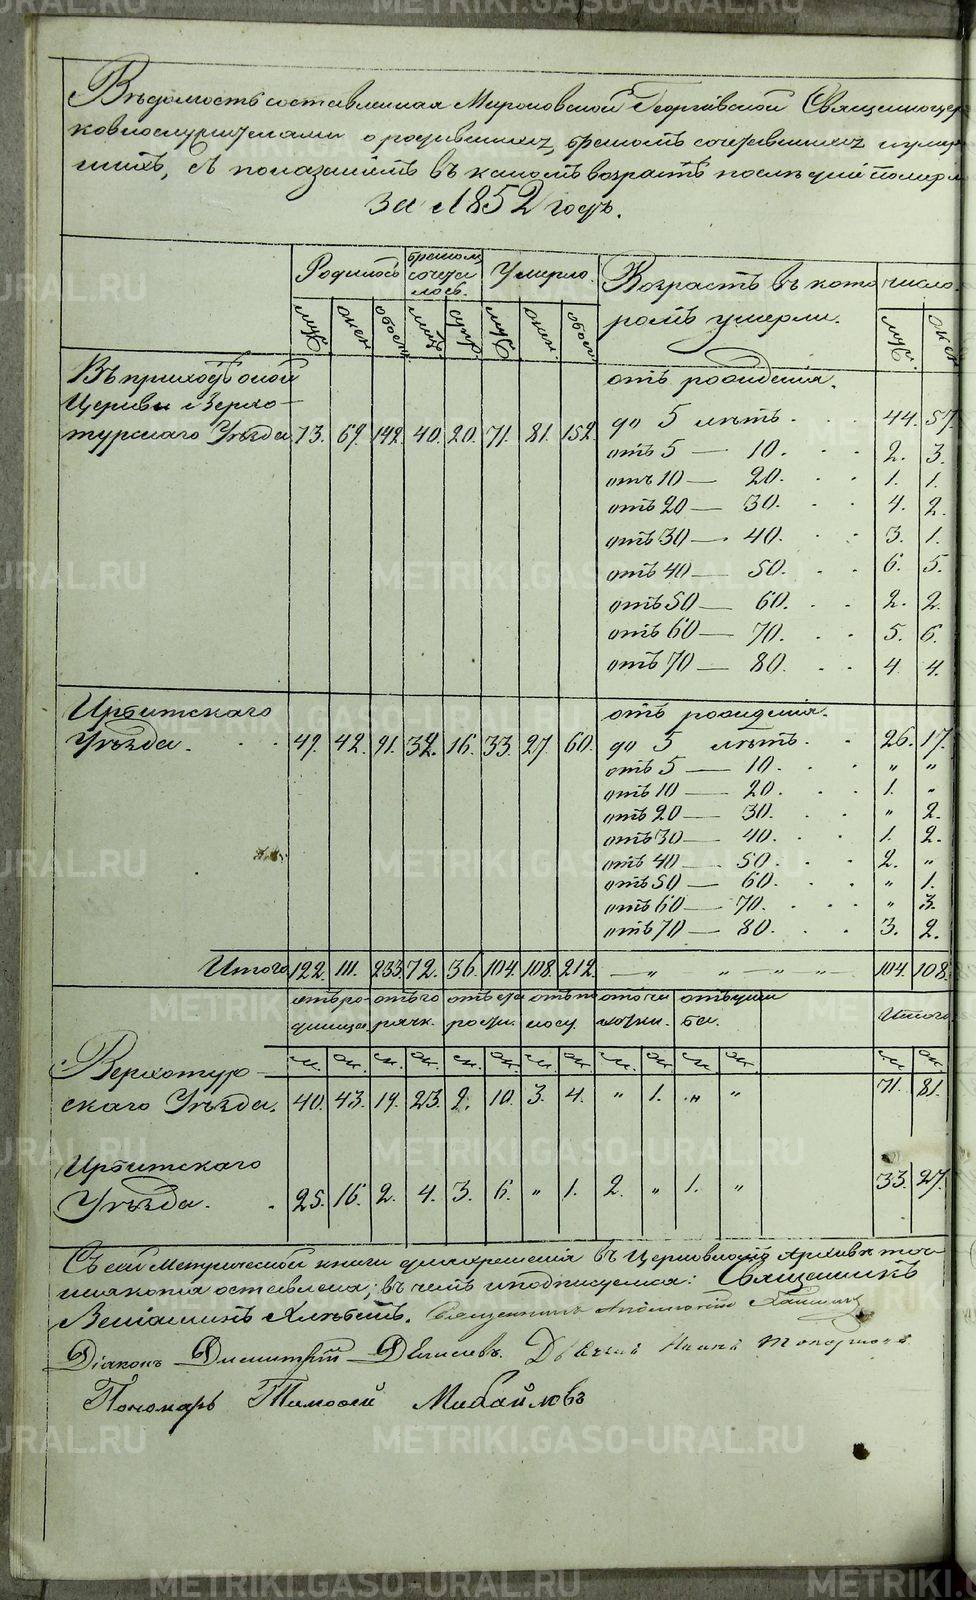 Вѣдомость составленная Мироновской Георгіевской Священноцер
ковнослужителями о родившихся, бракомъ сочетавшихся и умер
шихъ, съ показаніемъ въ какомъ возрастѣ послѣдніе померли
за 1852 годъ.
Родилось бракомъ сочета лось. Умерло. Возрастъ въ кото ромъ умерли. число.
муж. жен. обоег. лицъ. супр. муж. жен. обоег. муж. жен.
Въ приходѣ оной от рожденія.
Церкви Верхо-
турскаго Уѣзда 73. 69. 142. 40. 20. 71. 81. 152. до 5 лѣтъ. 44. 57.
отъ 5 — 10. 2. 3.
отъ 10 — 20. 1. 1.
отъ 20 — 30. 4. 2.
отъ 30 — 40. 3. 1.
отъ 40 — 50. 6. 5.
отъ 50 — 60. 2. 2.
отъ 60 — 70. 5. 6.
отъ 70 — 80. 4. 4.
Ирбитскаго отъ рожденія.
Уѣзда. 49. 42. 91. 32. 16. 33. 27. 60. до 5 лѣтъ. 26. 17.
отъ 5 — 10. „ „
отъ 10 — 20. 1. „
отъ 20 — 30. „ 2.
отъ 30 — 40. 1. 2.
отъ 40 — 50. 2. „
отъ 50 — 60. „ 1.
отъ 60 — 70. „ 3.
отъ 70 — 80. 3. 2.
Итого 122. 111. 233. 72. 36. 104. 108. 212. — „ „ — „ — „ — 104. 108.
отъ ро димца. отъ го рячк. отъ ста рости. отъ по носу. отъ ча хотки. отъ уши ба. Итого
м. ж. м. ж. м. ж. м. ж. м. ж. м. ж. м. ж.
Верхотур-
скаго Уѣзда. 40. 43. 19. 23. 9. 10. 3. 4. „ 1. „ „ 71. 81.
Ирбитскаго
Уѣзда. 25. 16. 2. 4. 3. 6. „ 1. 2. „ 1. „ 33. 27.
Съ сей Метрической книги для храненія въ Церковномъ Архивѣ точ-
ная копія оставлена; въ чемъ и подписуемся: Священникъ
Веніаминъ Хлѣбинъ. Священникъ
Діаконъ Димитрій Денисовъ. Дьячекъ Иванъ Топорковъ
Пономарь Тимофей Михайловъ
METRIKI.GASO-URAL.RU